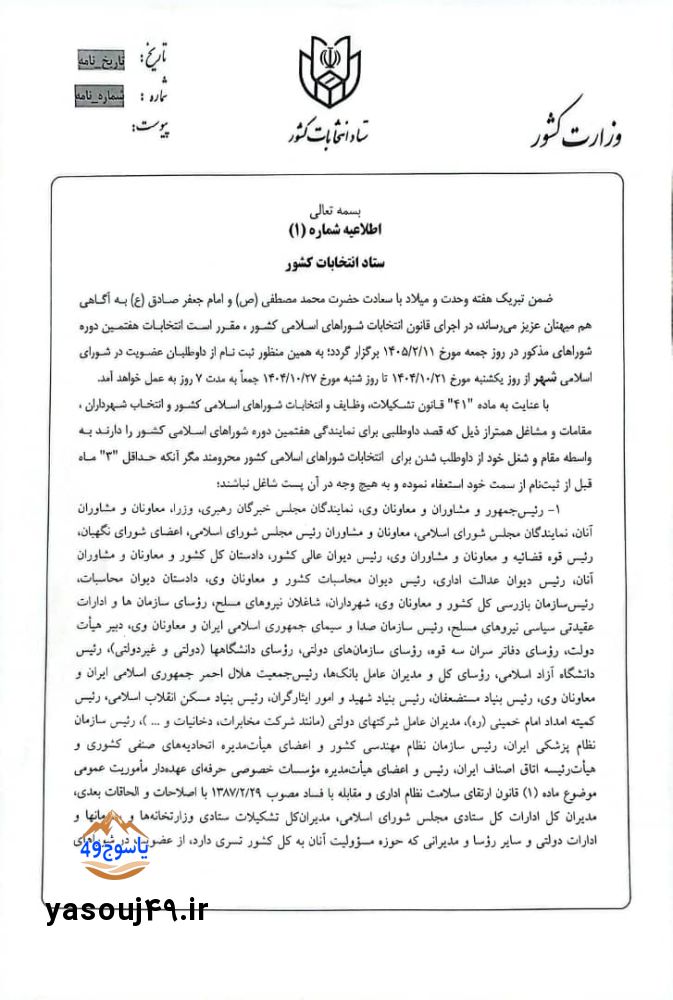 وزارت کشور
ستاد انتخابات کشور
تاریخ: تاریخ_نامه
شماره : شماره_نامه
پیوست:
بسمه تعالی
اطلاعیه شماره (۱)
ستاد انتخابات کشور
ضمن تبریک هفته وحدت و میلاد با سعادت حضرت محمد مصطفی (ص) و امام جعفر صادق (ع) به آگاهی
هم میهنان عزیز می‌رساند، در اجرای قانون انتخابات شوراهای اسلامی کشور ، مقرر است انتخابات هفتمین دوره
شوراهای مذکور در روز جمعه مورخ ۱۴۰۵/۲/۱۱ برگزار گردد؛ به همین منظور ثبت نام از داوطلبان عضویت در شورای
اسلامی شهر از روز یکشنبه مورخ ۱۴۰۴/۱۰/۲۱ تا روز شنبه مورخ ۱۴۰۴/۱۰/۲۷ جمعاً به مدت ۷ روز به عمل خواهد آمد.
با عنایت به ماده "۴۱" قانون تشکیلات، وظایف و انتخابات شوراهای اسلامی کشور و انتخاب شهرداران ،
مقامات و مشاغل همتراز ذیل که قصد داوطلبی برای نمایندگی هفتمین دوره شوراهای اسلامی کشور را دارند به
واسطه مقام و شغل خود از داوطلب شدن برای انتخابات شوراهای اسلامی کشور محرومند مگر آنکه حداقل "۳" ماه
قبل از ثبت‌نام از سمت خود استعفاء نموده و به هیچ وجه در آن پست شاغل نباشند؛
۱- رئیس‌جمهور و مشاوران و معاونان وی، نمایندگان مجلس خبرگان رهبری، وزرا، معاونان و مشاوران
آنان، نمایندگان مجلس شورای اسلامی، معاونان و مشاوران رئیس مجلس شورای اسلامی، اعضای شورای نگهبان،
رئیس قوه قضائیه و معاونان و مشاوران وی، رئیس دیوان عالی کشور، دادستان کل کشور و معاونان و مشاوران
آنان، رئیس دیوان عدالت اداری، رئیس دیوان محاسبات کشور و معاونان وی، دادستان دیوان محاسبات،
رئیس‌سازمان بازرسی کل کشور و معاونان وی، شهرداران، شاغلان نیروهای مسلح، رؤسای سازمان ها و ادارات
عقیدتی سیاسی نیروهای مسلح، رئیس سازمان صدا و سیمای جمهوری اسلامی ایران و معاونان وی، دبیر هیأت
دولت، رؤسای دفاتر سران سه قوه، رؤسای سازمان‌های دولتی، رؤسای دانشگاهها (دولتی و غیردولتی)، رئیس
دانشگاه آزاد اسلامی، رؤسای کل و مدیران عامل بانک‌ها، رئیس‌جمعیت هلال احمر جمهوری اسلامی ایران و
معاونان وی، رئیس بنیاد مستضعفان، رئیس بنیاد شهید و امور ایثارگران، رئیس بنیاد مسکن انقلاب اسلامی، رئیس
کمیته امداد امام خمینی (ره)، مدیران عامل شرکتهای دولتی (مانند شرکت مخابرات، دخانیات و ... )، رئیس سازمان
نظام پزشکی ایران، رئیس سازمان نظام مهندسی کشور و اعضای هیأت‌مدیره اتحادیه‌های صنفی کشوری و
هیأت‌رئیسه اتاق اصناف ایران، رئیس و اعضای هیأت‌مدیره مؤسسات خصوصی حرفه‌ای عهده‌دار مأموریت عمومی
موضوع ماده (۱) قانون ارتقای سلامت نظام اداری و مقابله با فساد مصوب ۱۳۸۷/۲/۲۹ با اصلاحات و الحاقات بعدی،
مدیران کل ادارات کل ستادی مجلس شورای اسلامی، مدیران‌کل تشکیلات ستادی وزارتخانه‌ها و سازمانها و
ادارات دولتی و سایر رؤسا و مدیرانی که حوزه مسؤولیت آنان به کل کشور تسری دارد، از عضویت در شوراهای
یاسوج49
yasouj۴۹.ir